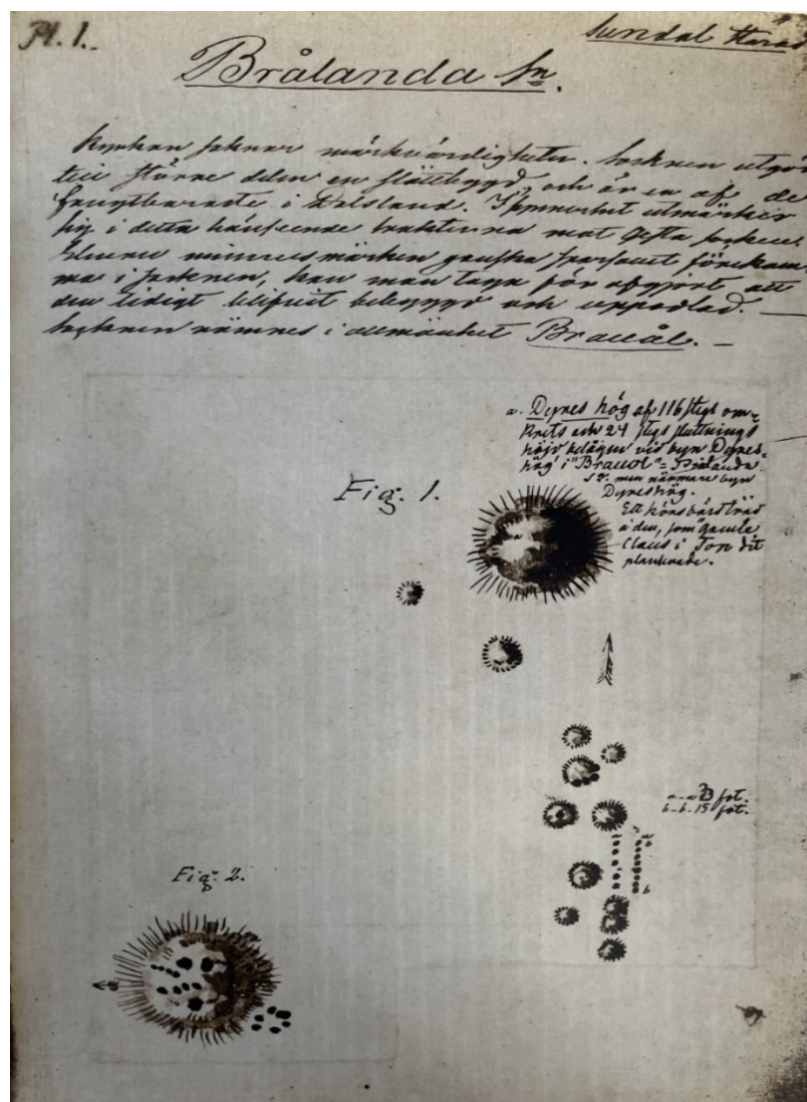 Pl. 1.
Sundal Härad
Brålanda Sn.
Kyrkan saknar märkvärdigheter. Socknen utgör
till större delen en slättbygd, och är en af de
frugtbaraste i Dalsland. Synnerligt utmärker
sig i detta hänseende trakterna mot Gesta socken.
minnesmärken ganska sparsamt förekom-
ma i socknen, kan man taga för afgjort att
den tidigt blifvit bebyggd och uppodlad. —
Socknen nämnes i allmänhet Brauål. —
a. Dynes hög af 116 stegs om-
krets och 24 stegs sluttnings
höjd belägen vid byn Dynes-
hög i "Brauol" = Brålanda
S. men närmare byn
Dyneshög.
Ett hönsbärsträd
å den, som gamle
Claus i Ton dit
planterade.
Fig. 1.
a-a 23 fot.
b-b-15 fot.
b
Fig. 2.